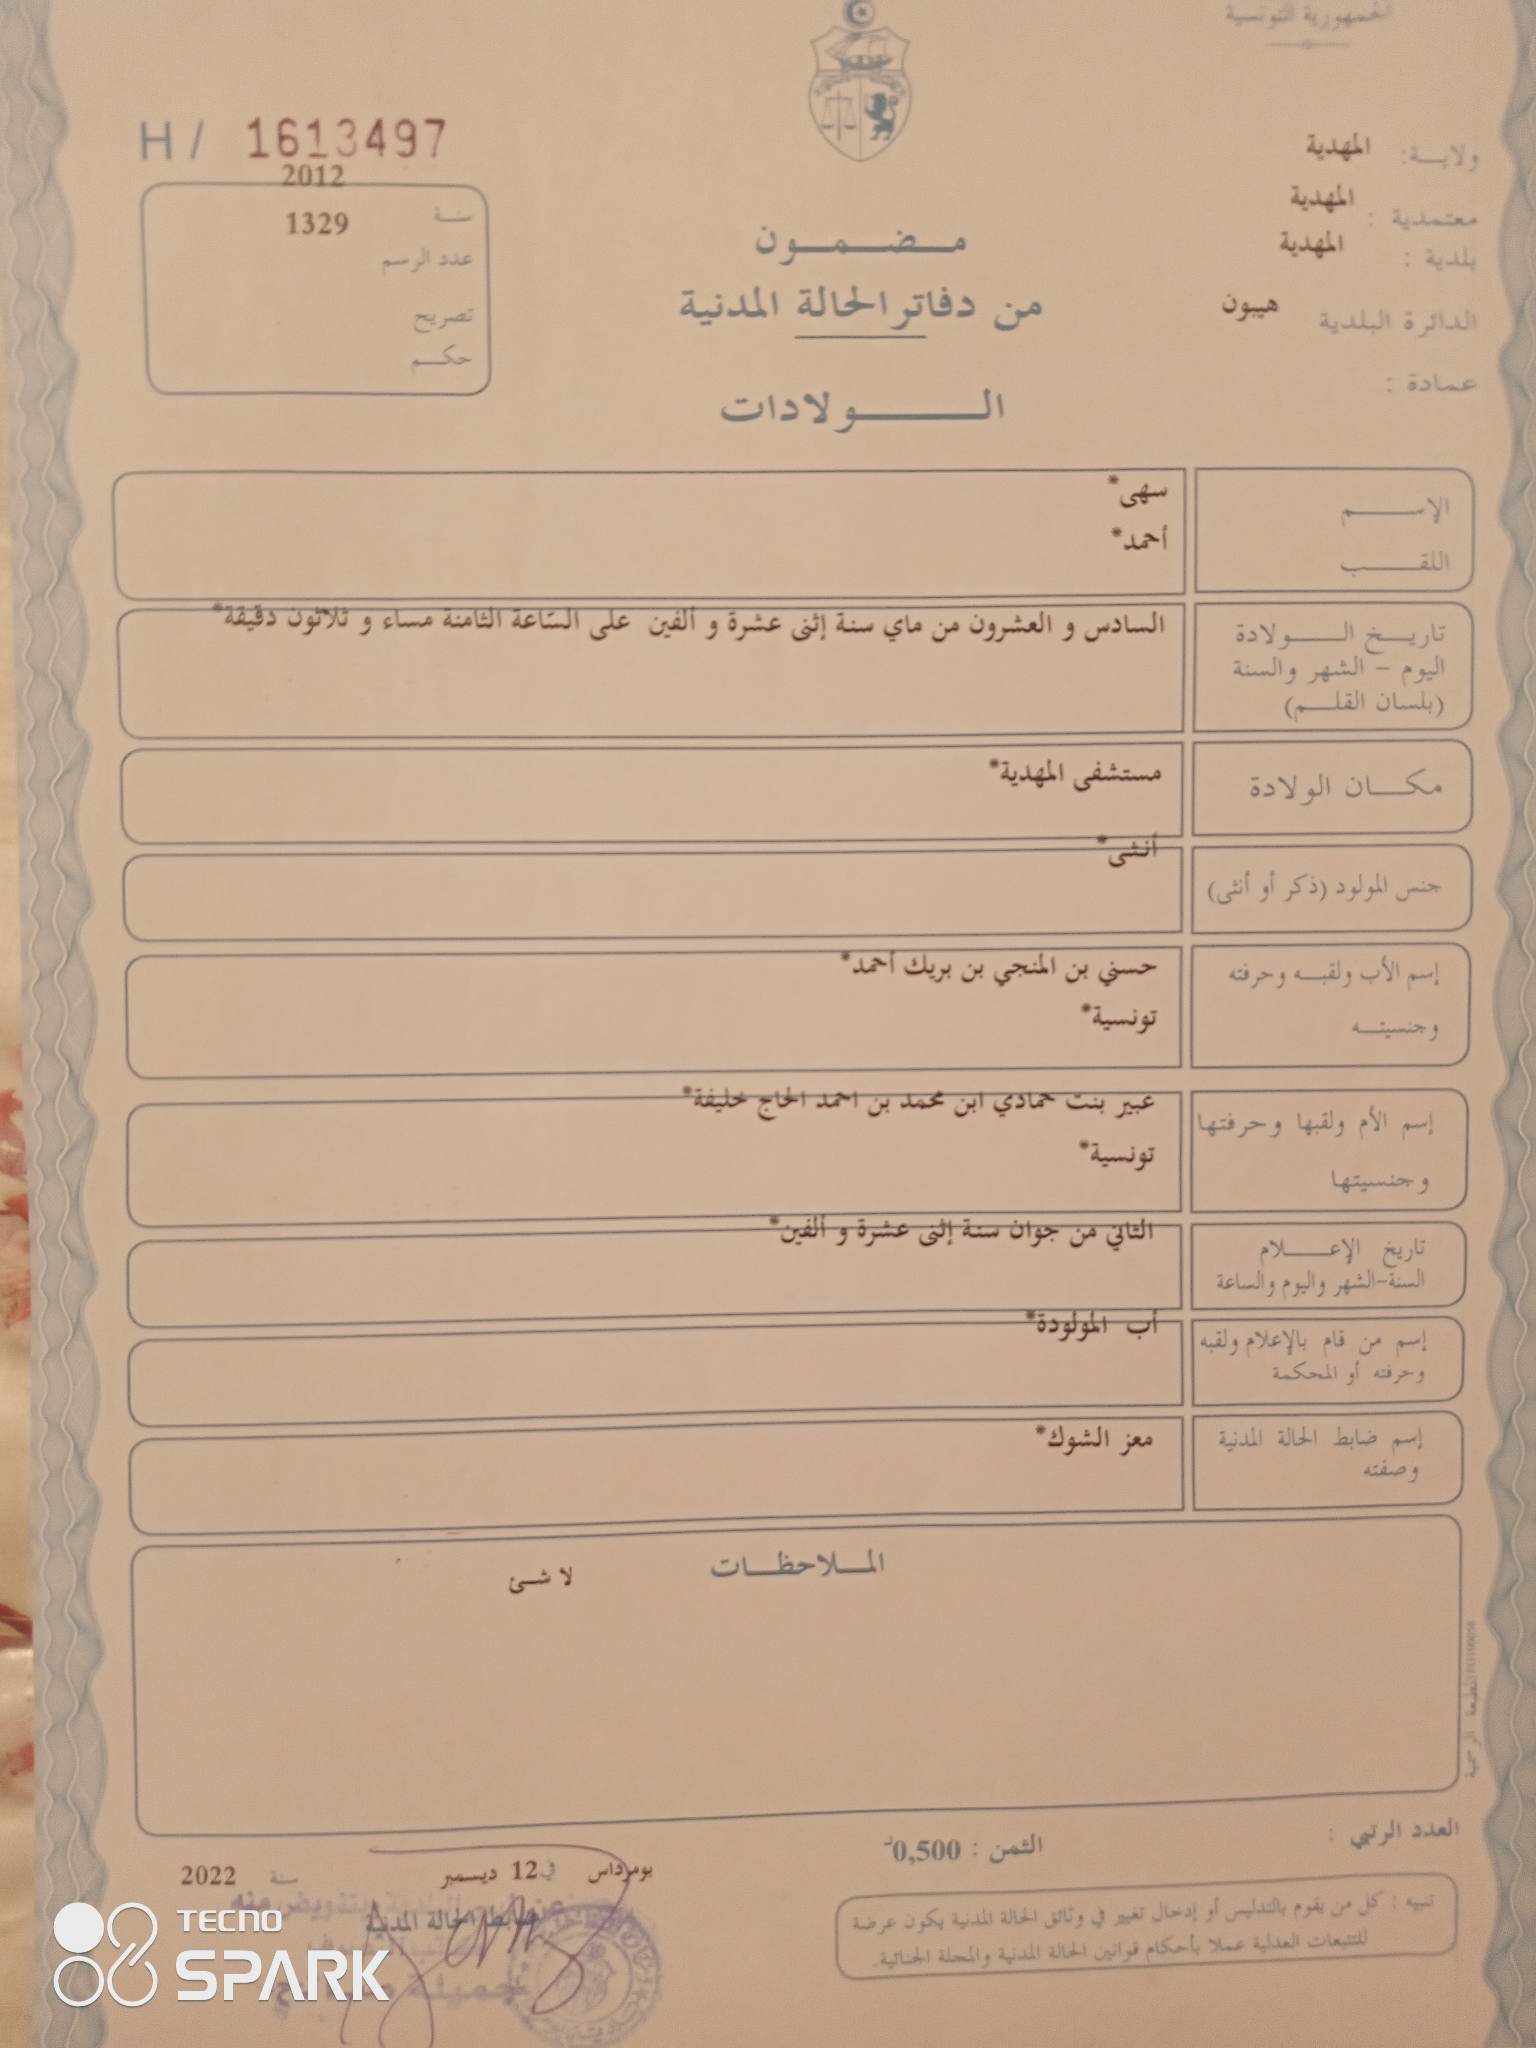 الجمهورية التونسية
H / 1613497
ولايـة: المهدية
معتمدية : المهدية
بلدية : المهدية
الدائرة البلدية هيبون
عمادة :
2012
سنـة
1329
عدد الرسم
تصريح
حكـم
مـضـمـون
من دفاتر الحالة المدنية
الـولادات
الإسـم سهى*
اللقـب أحمد*
تاريـخ الـولادة السادس و العشرون من ماي سنة إثنى عشرة و ألفين على السّاعة الثامنة مساء و ثلاثون دقيقة*
اليوم – الشهر والسنة
(بلسان القلـم)
مكـان الولادة مستشفى المهدية*
جنس المولود (ذكر أو أنثى) أنثى*
إسم الأب ولقبـه وحرفته حسني بن المنجي بن بريك أحمد*
وجنسيتـه تونسية*
إسم الأم ولقبها وحرفتها عبير بنت حمادي ابن محمد بن احمد الحاج خليفة*
وجنسيتها تونسية*
تاريخ الإعـلام الثاني من جوان سنة إثنى عشرة و ألفين*
السنة-الشهر واليوم والساعة
إسم من قام بالإعلام ولقبه أب المولودة*
وحرفته أو المحكمة
إسم ضابط الحالة المدنية معز الشوك*
وصفته
المـلاحظـات لا شـئ
المطبعة الرسمية
العدد الرتبي :
الثمن : 0,500د
بومرداس في 12 ديسمبر سنة 2022
ضابط الحالة المدنية
تنبيه : كل من يقوم بالتدليس أو إدخال تغيير في وثائق الحالة المدنية يكون عرضة
للتتبعات العدلية عملا بأحكام قوانين الحالة المدنية والمجلة الجنائية.
TECNO
SPARK